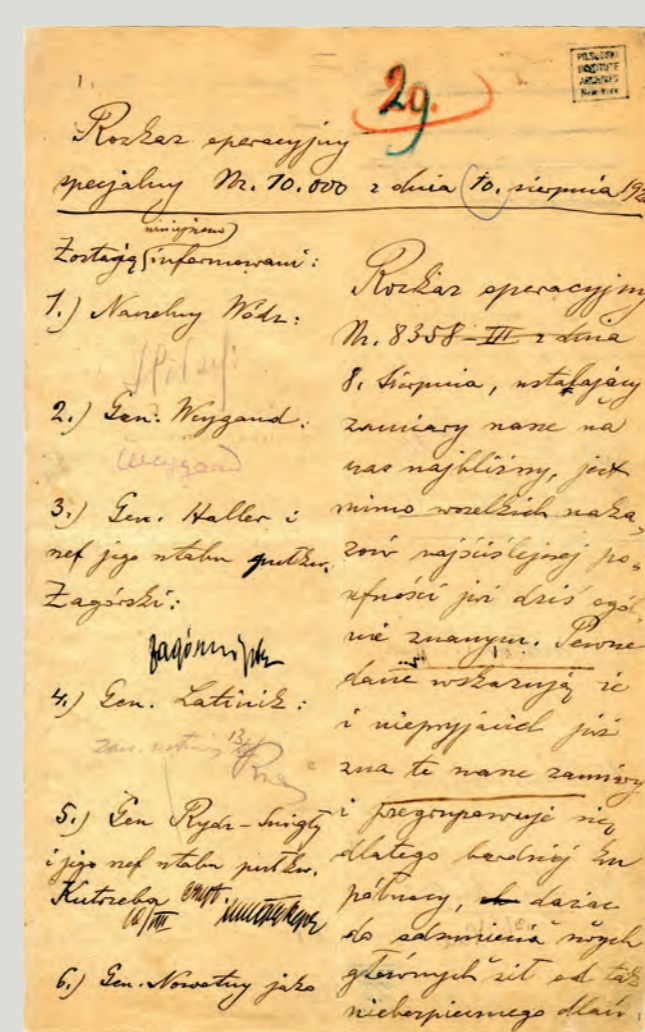 1.
29.
PILSUDSKI
INSTITUTE
ARCHIVES
New-York
Rozkaz operacyjny
specjalny Nr. 10.000 z dnia 10. sierpnia 192
niniejszem
Zostają informowani:
1.) Naczelny Wódz:
2.) Gen. Weygand:
Weygand
3.) Gen. Haller i
szef jego sztabu pułkw.
Zagórski:
4.) Gen. Latinik:
5.) Gen Rydz-Śmigły
i jego szef sztabu pułkw.
Kutrzeba
6.) Gen. Nowotny jako
Rozkaz operacyjny
Nr. 8358-III z dnia
8. Sierpnia, ustalający
zamiary nasze na
czas najbliższy, jest
mimo wszelkich naka-
zów najściślejszej po-
ufności już dziś ogól-
nie znanym. Pewne
dane wskazują że
i nieprzyjaciel już
zna te nasze zamiary
i przegrupowuje się
dlatego bardziej ku
północy, dążąc
do odsunięcia swych
głównych sił od tak
niebezpiecznego dlań